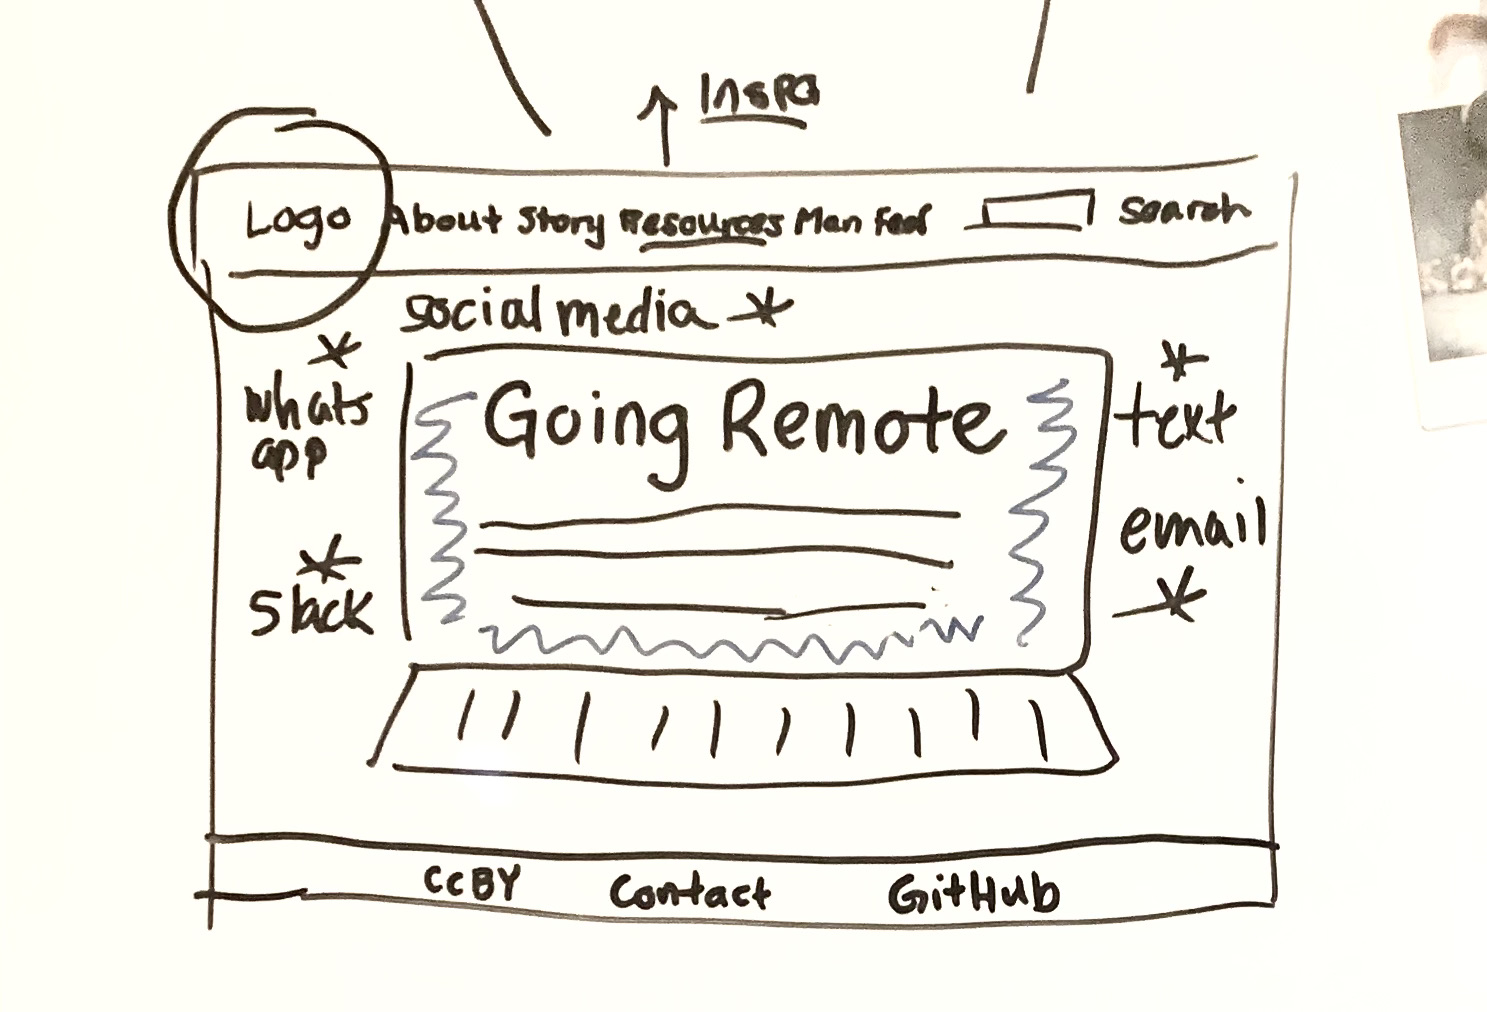 Inspo
Logo About Story Resources Man Fest Search
social media
whats
app
Going Remote
text
email
Slack
CCBY Contact GitHub